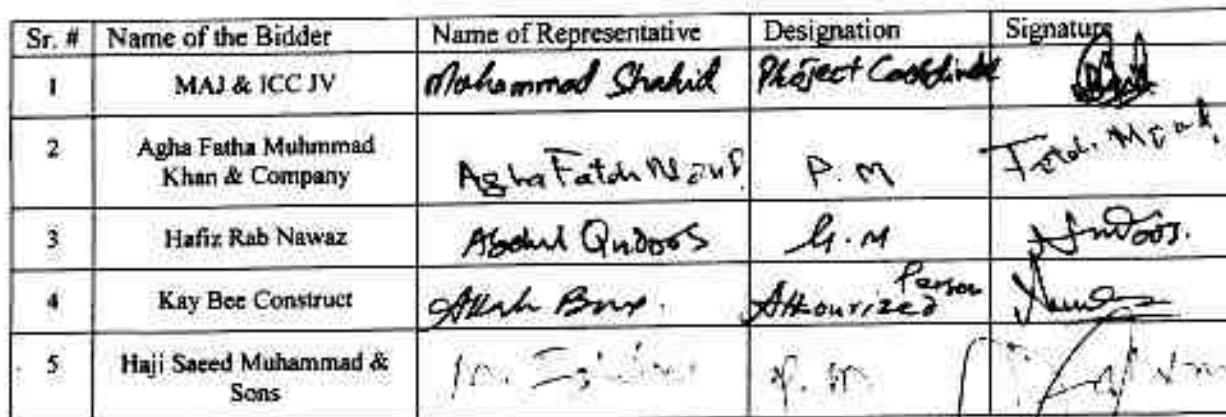 Sr. # Name of the Bidder Name of Representative Designation Signature
1 MAJ & ICC JV Mohammad Shahid Project
2 Agha Fatha Muhmmad Khan & Company Agha Fateh P. M
3 Hafiz Rab Nawaz Abdul Qudoos G. M Qudoos.
4 Kay Bee Construct Allah Bux. Athourized Person
5 Haji Saeed Muhammad & Sons P. M.